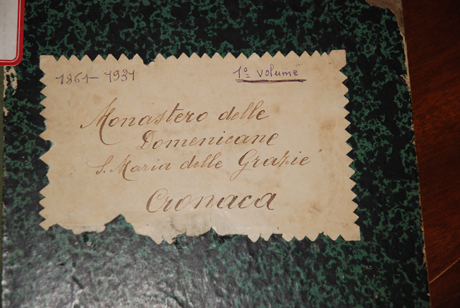 1861-1931 1º volume
Monastero delle
Domenicane
S. Maria delle Grazie
Cronaca